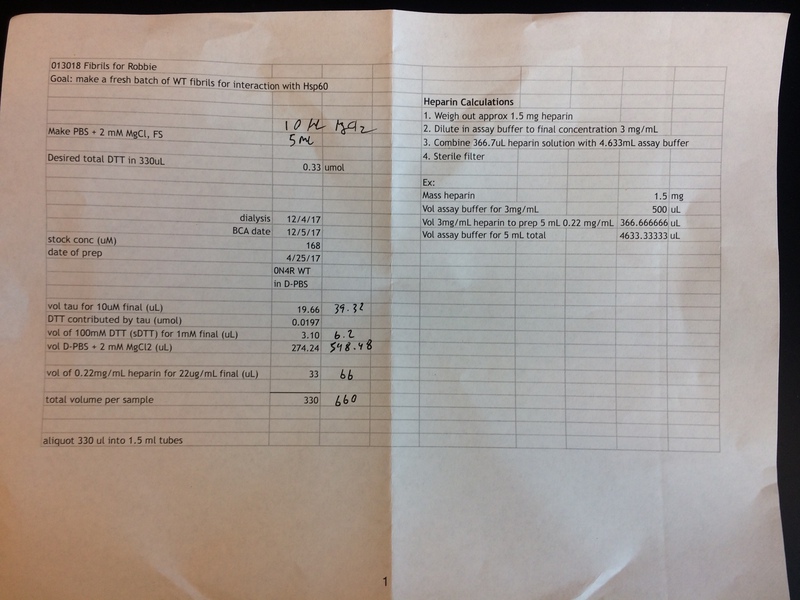 013018 Fibrils for Robbie
Goal: make a fresh batch of WT fibrils for interaction with Hsp60
Make PBS + 2 mM MgCl, FS 10 MgCl2
5 mL
Desired total DTT in 330uL
0.33 umol
dialysis 12/4/17
BCA date 12/5/17
stock conc (uM) 168
date of prep 4/25/17
0N4R WT
in D-PBS
vol tau for 10uM final (uL) 19.66 39.32
DTT contributed by tau (umol) 0.0197
vol of 100mM DTT (sDTT) for 1mM final (uL) 3.10 6.2
vol D-PBS + 2 mM MgCl2 (uL) 274.24 548.48
vol of 0.22mg/mL heparin for 22ug/mL final (uL) 33 66
total volume per sample 330 660
aliquot 330 ul into 1.5 ml tubes
Heparin Calculations
1. Weigh out approx 1.5 mg heparin
2. Dilute in assay buffer to final concentration 3 mg/mL
3. Combine 366.7uL heparin solution with 4.633mL assay buffer
4. Sterile filter
Ex:
Mass heparin 1.5 mg
Vol assay buffer for 3mg/mL 500 uL
Vol 3mg/mL heparin to prep 5 mL 0.22 mg/mL 366.666666 uL
Vol assay buffer for 5 mL total 4633.33333 uL
1